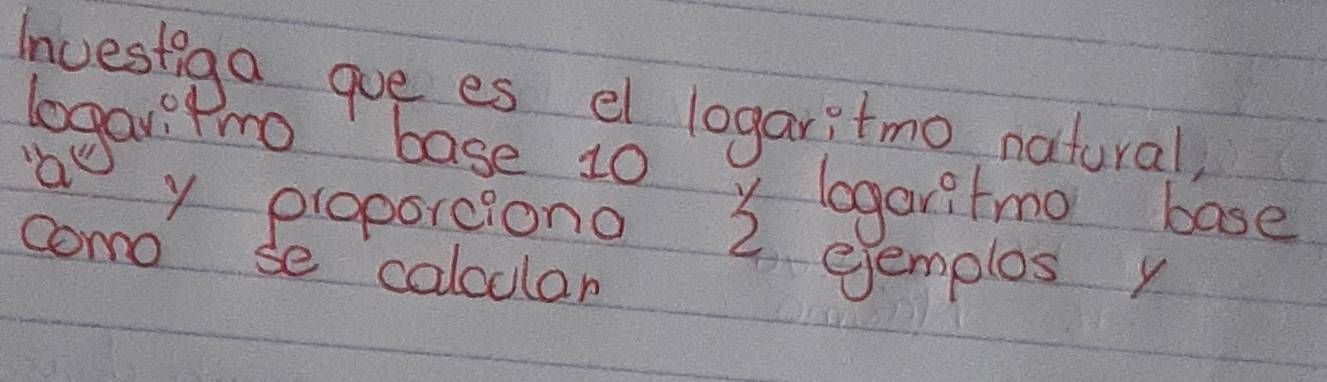 Investiga que es el logaritmo natural,
logaritmo base 10 y logaritmo base
"a" y proporciona 2 ejemplos y
como se calculan